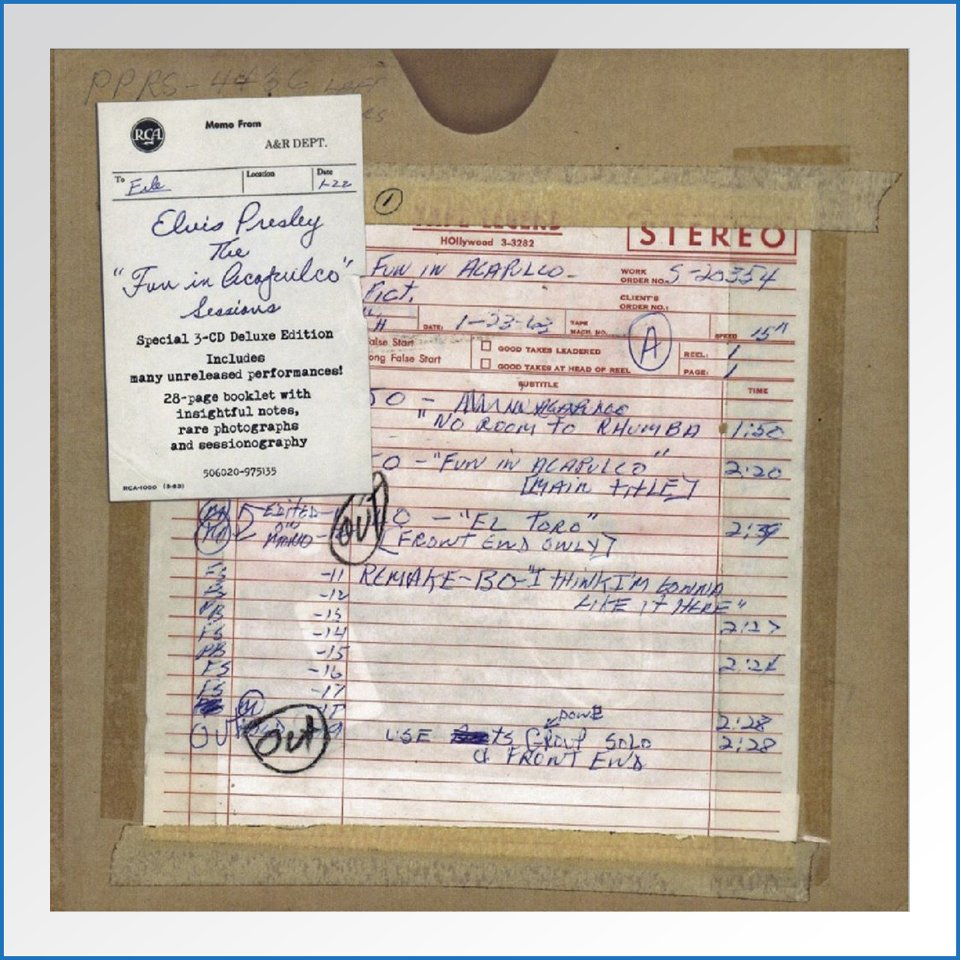 PPRS-4436
RCA
Memo From
A&R DEPT.
To File
Location
Date 1-22
Elvis Presley
The
"Fun in Acapulco"
Sessions
Special 3-CD Deluxe Edition
Includes
many unreleased performances!
28-page booklet with
insightful notes,
rare photographs
and sessionography
506020-975135
RCA-1000 (3-63)
1
TAPE LEGEND
HOllywood 3-3282
STEREO
FUN IN ACAPULCO-
WORK ORDER NO. S-20354
PICT.
CLIENT'S ORDER NO.:
H
DATE: 1-23-63
TAPE MACH. NO.
A
SPEED 15"
alse Start
GOOD TAKES LEADERED
REEL: 1
ong False Start
GOOD TAKES AT HEAD OF REEL
PAGE: 1
SUBTITLE
TIME
O -
"NO ROOM TO RHUMBA 1:50
O - "FUN IN ACAPULCO" 2:20
[MAIN TITLE]
EDITED OUT O - "EL TORO" 2:39
[FRONT END ONLY]
FS -11 REMAKE-BO-"I THINK I'M GONNA
FS -12 LIKE IT HERE"
PB -13 2:27
FS -14
PB -15 2:24
FS -16
FS -17
M 2:28
OUT OUT USE TS GROUP SOLO 2:28
& FRONT END